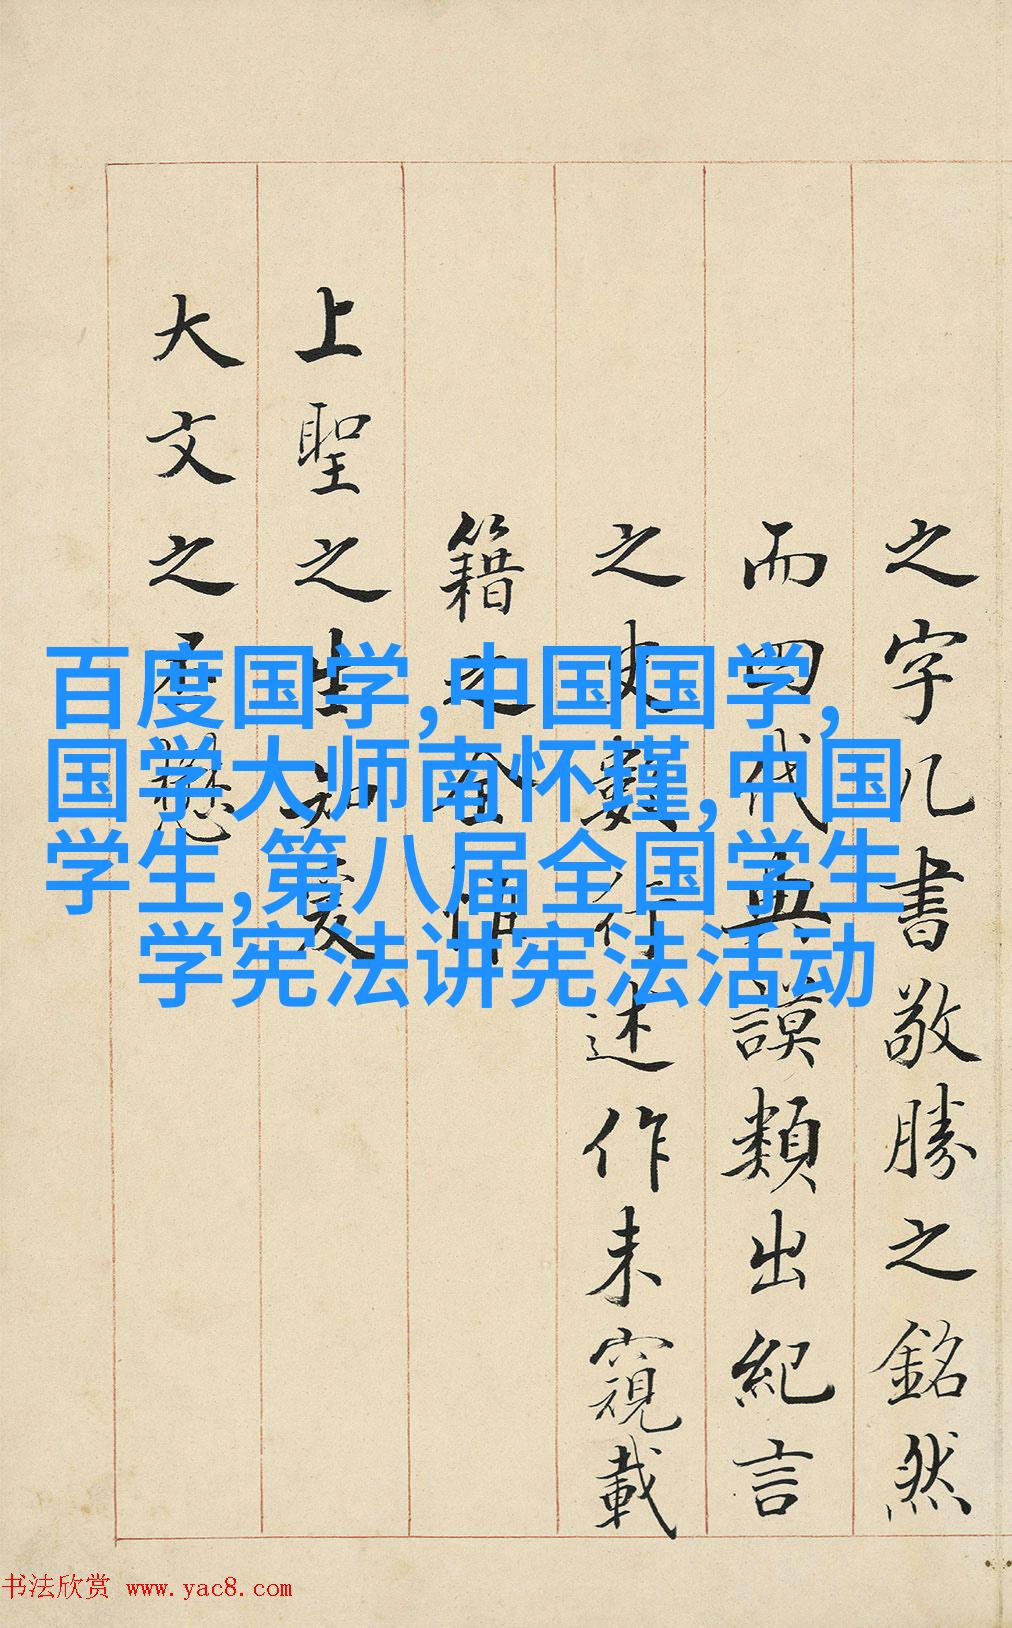 之字几書敬勝之銘然
而四代典謨類出紀言
之史數行述作未窺載
籍之全
上聖之生知
大文之懋
百度国学,中国国学,
国学大师南怀瑾,中国
学生,第八届全国学生
学宪法讲宪法活动
书法欣赏 www.yac8.com